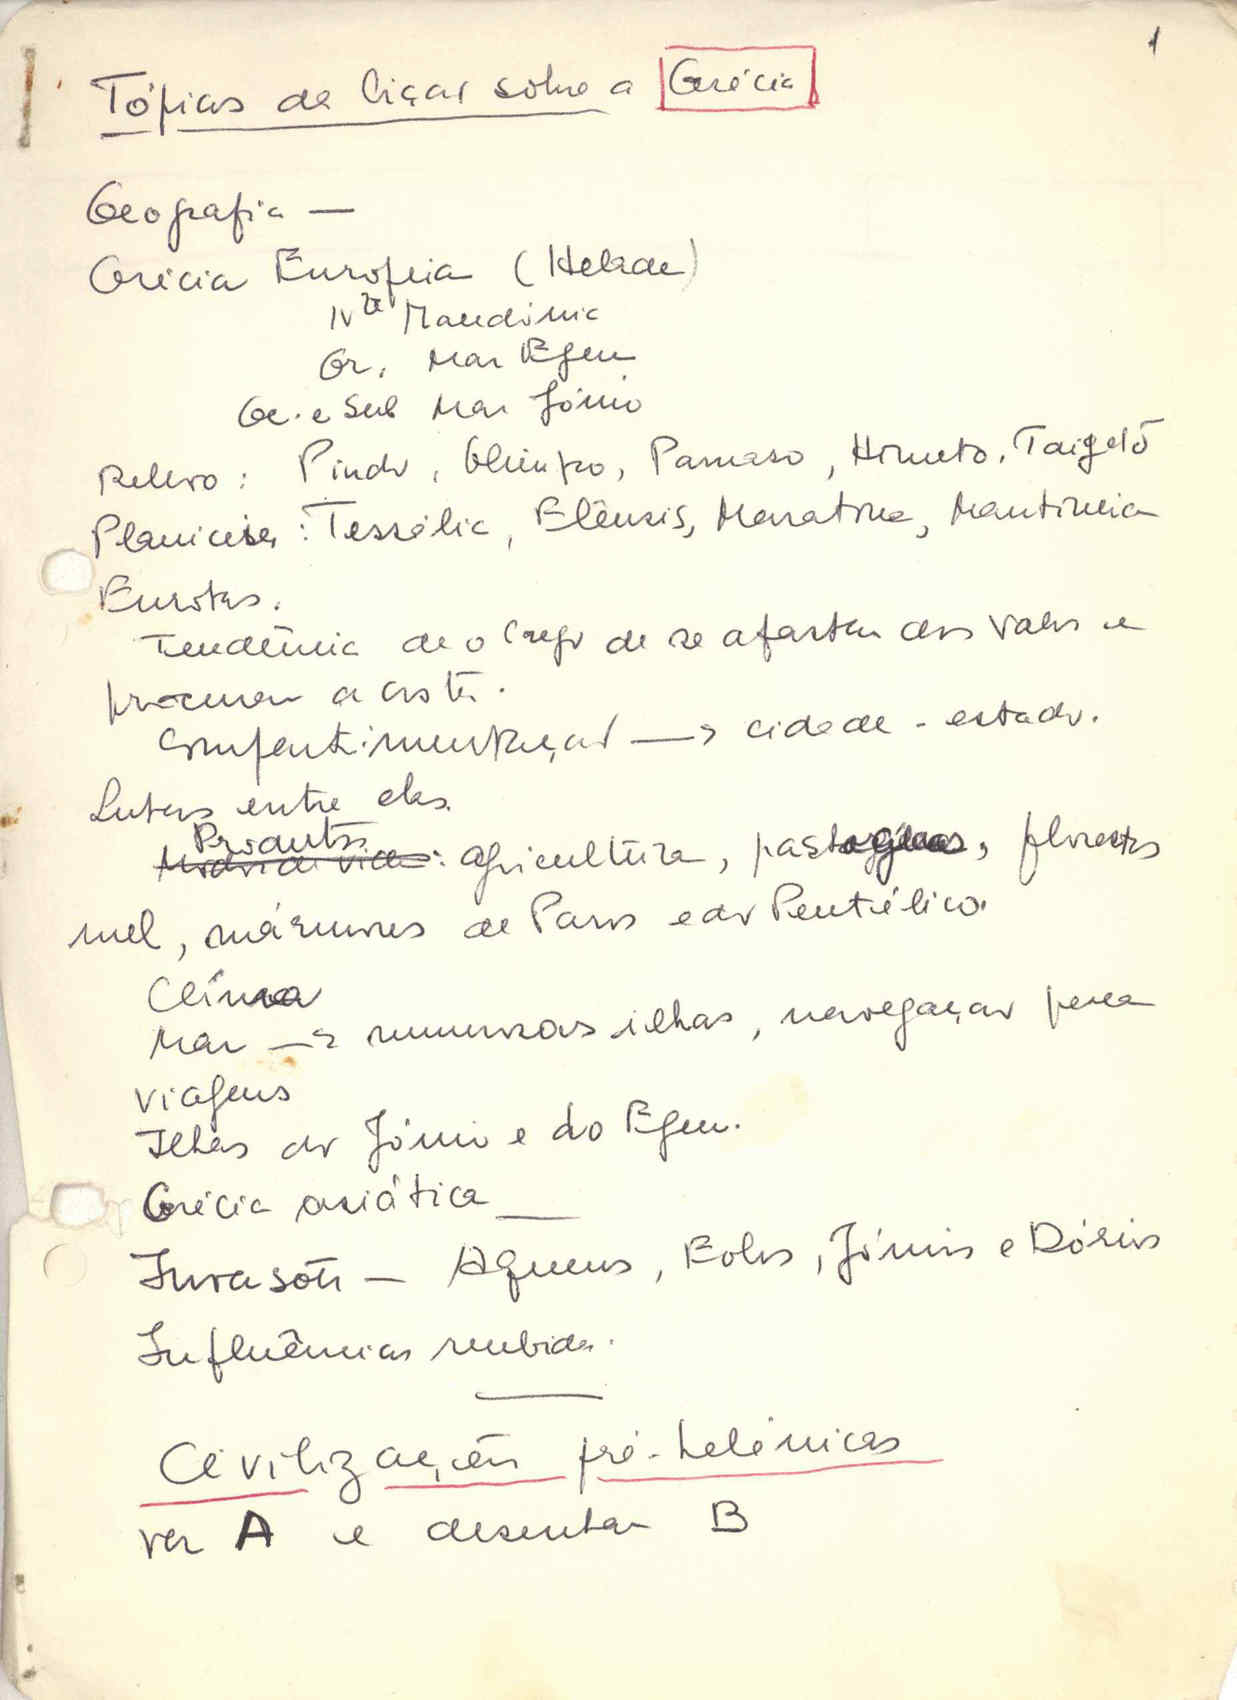 1
Tópicos da lição sobre a Grécia
Geografia —
Grécia Europeia (Hélade)
Nte Macedónia
Or. Mar Egeu
Oc. e Sul Mar Jónio
Relevo: Pindo, Olimpo, Parnaso, Himeto, Taigeto
Planícies: Tessália, Elêusis, Maratona, Mantineia
Eurotas.
Tendência de o Grego de se afastar dos vales e
procurar a costa.
Compartimentação → cidade-estado.
Lutas entre elas.
Produtos
Modo de vida: agricultura, pastagens, florestas
mel, mármores de Paros e do Pentélico.
Clima
Mar → numerosas ilhas, navegação pesca
viagens
Ilhas do Jónio e do Egeu.
Grécia asiática —
Invasões — Aqueus, Eólios, Jónios e Dórios
Influências recebidas.
Civilizações pré-helénicas
ver A e desenhar B